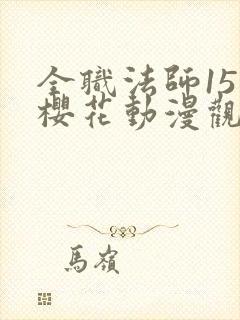 全職法師15
櫻花動漫觀
馬嶺